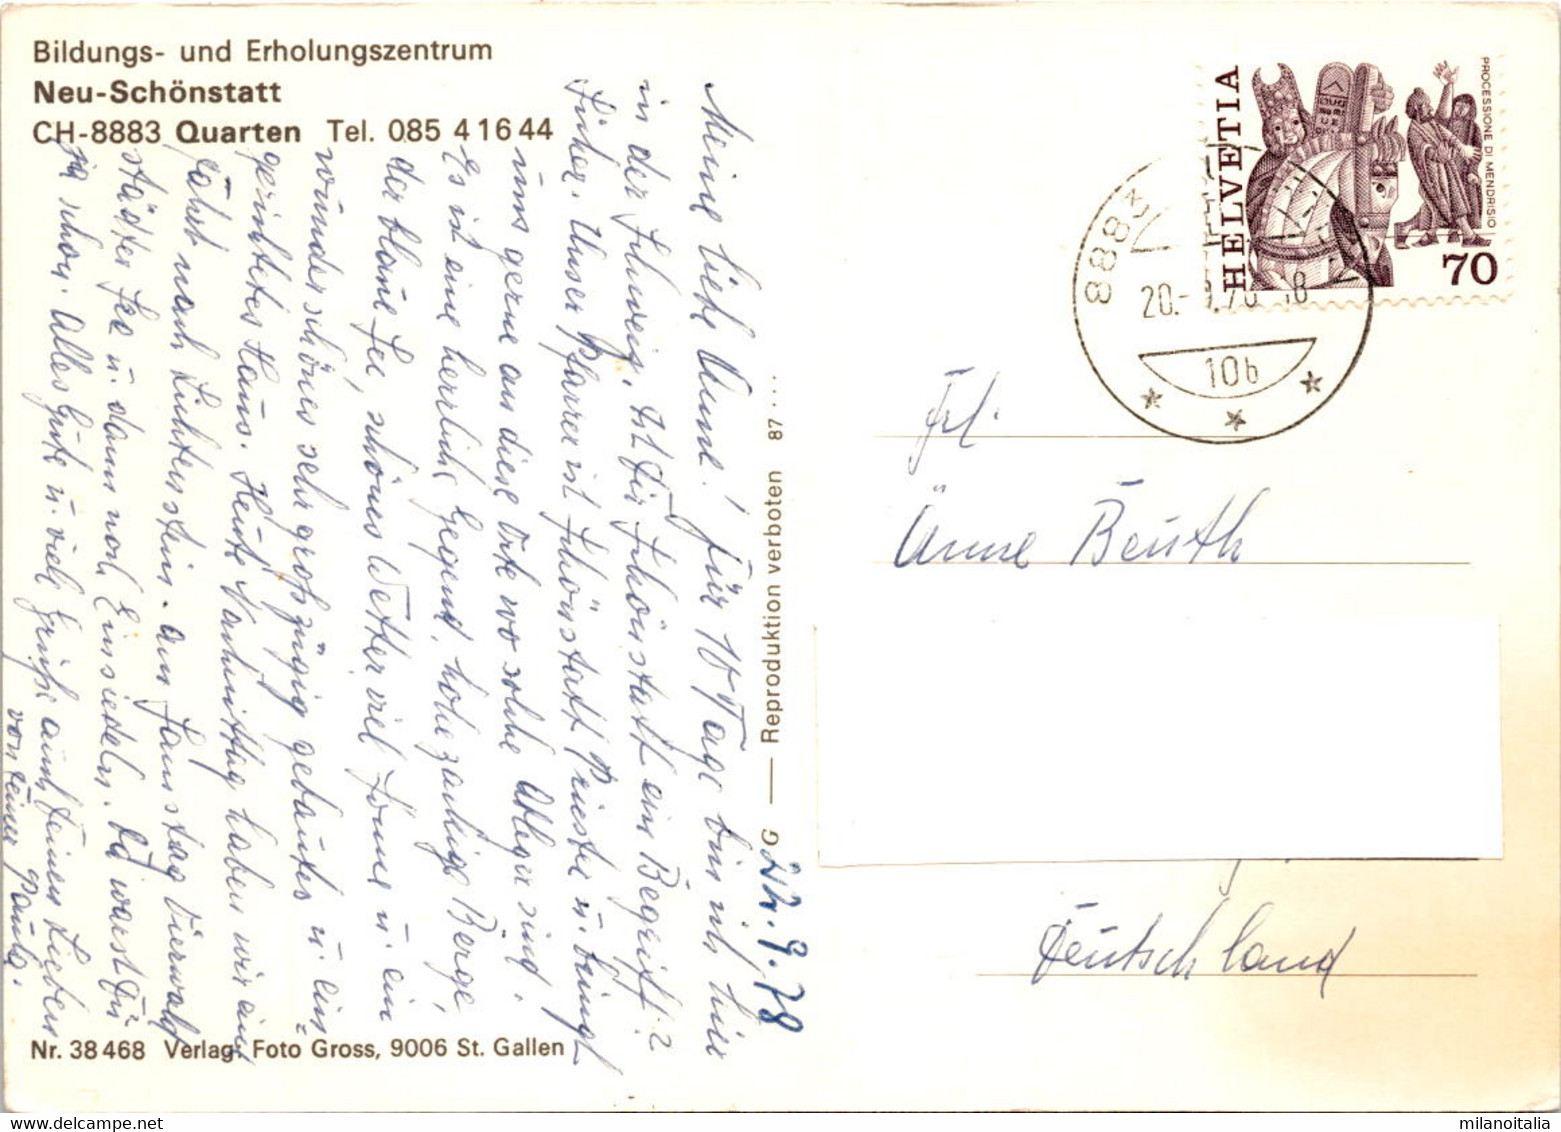 Bildungs- und Erholungszentrum
Neu-Schönstatt
CH-8883 Quarten Tel. 085 4 16 44
Meine liebe Anne! Für 10 Tage bin ich hier
in der Schweiz. Ist Dir Schönstatt ein Begriff?
Sicher. Unser Pfarrer ist Schönstatt Priester u. bringt
uns gerne an diese Orte wo solche Ableger sind.
Es ist eine herrliche Gegend, hohe zackige Berge,
der blaue See, schönes Wetter viel Sonne u. ein
wunderschönes sehr großzügig gebautes u. ein
gerichtetes Haus. Heute Nachmittag haben wir eine
Fahrt nach Lichtenstein. Am Samstag Vierwald
städter See u. dann noch Einsiedeln. Da warst Du
ja schon. Alles Gute u. viele Grüße auch Deinen Lieben
von Deiner Paula.
Nr. 38 468 Verlag Foto Gross, 9006 St. Gallen
G — Reproduktion verboten 87 ....
24.9.78
HELVETIA
PROCESSIONE DI MENDRISIO
70
8883
20.-
18
10b
Frl.
Änne Beuth
Deutschland
milanoitalia